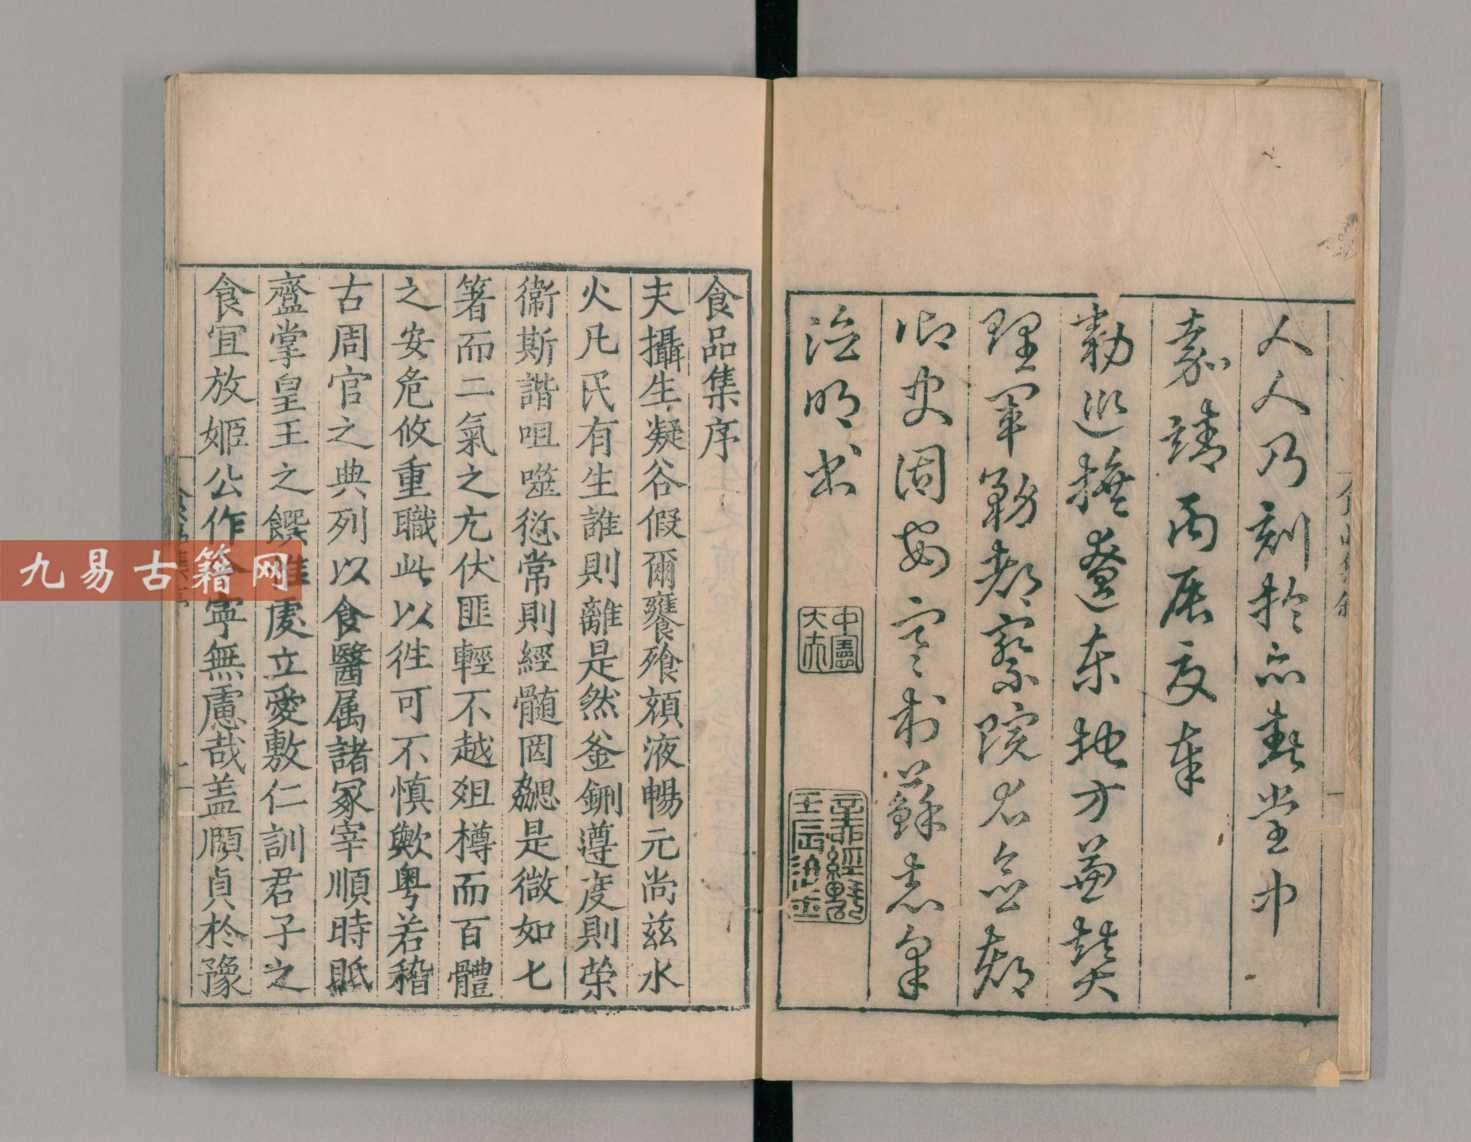 人人乃刻於亦
嘉靖丙辰夏奉
勅巡撫遼東地方兼贊
理軍務都察院右僉都
御史固安
蘇志皋
治明
食品集序
夫攝生凝谷假爾饔飱頮液暢元尚茲水
火凡民有生誰則離是然釜鉶遵度則榮
衛斯諧咀噬愆常則經髓罔勰是微如七
箸而二氣之亢伏匪輕不越爼樽而百體
之安危攸重職此以徃可不慎歟粤若稽
古周官之典列以食醫属諸冢宰順時眂
齍掌皇王之饌處立愛敷仁訓君子之
食宜放姬公作寧無慮哉盖頤貞於豫
九易古籍网